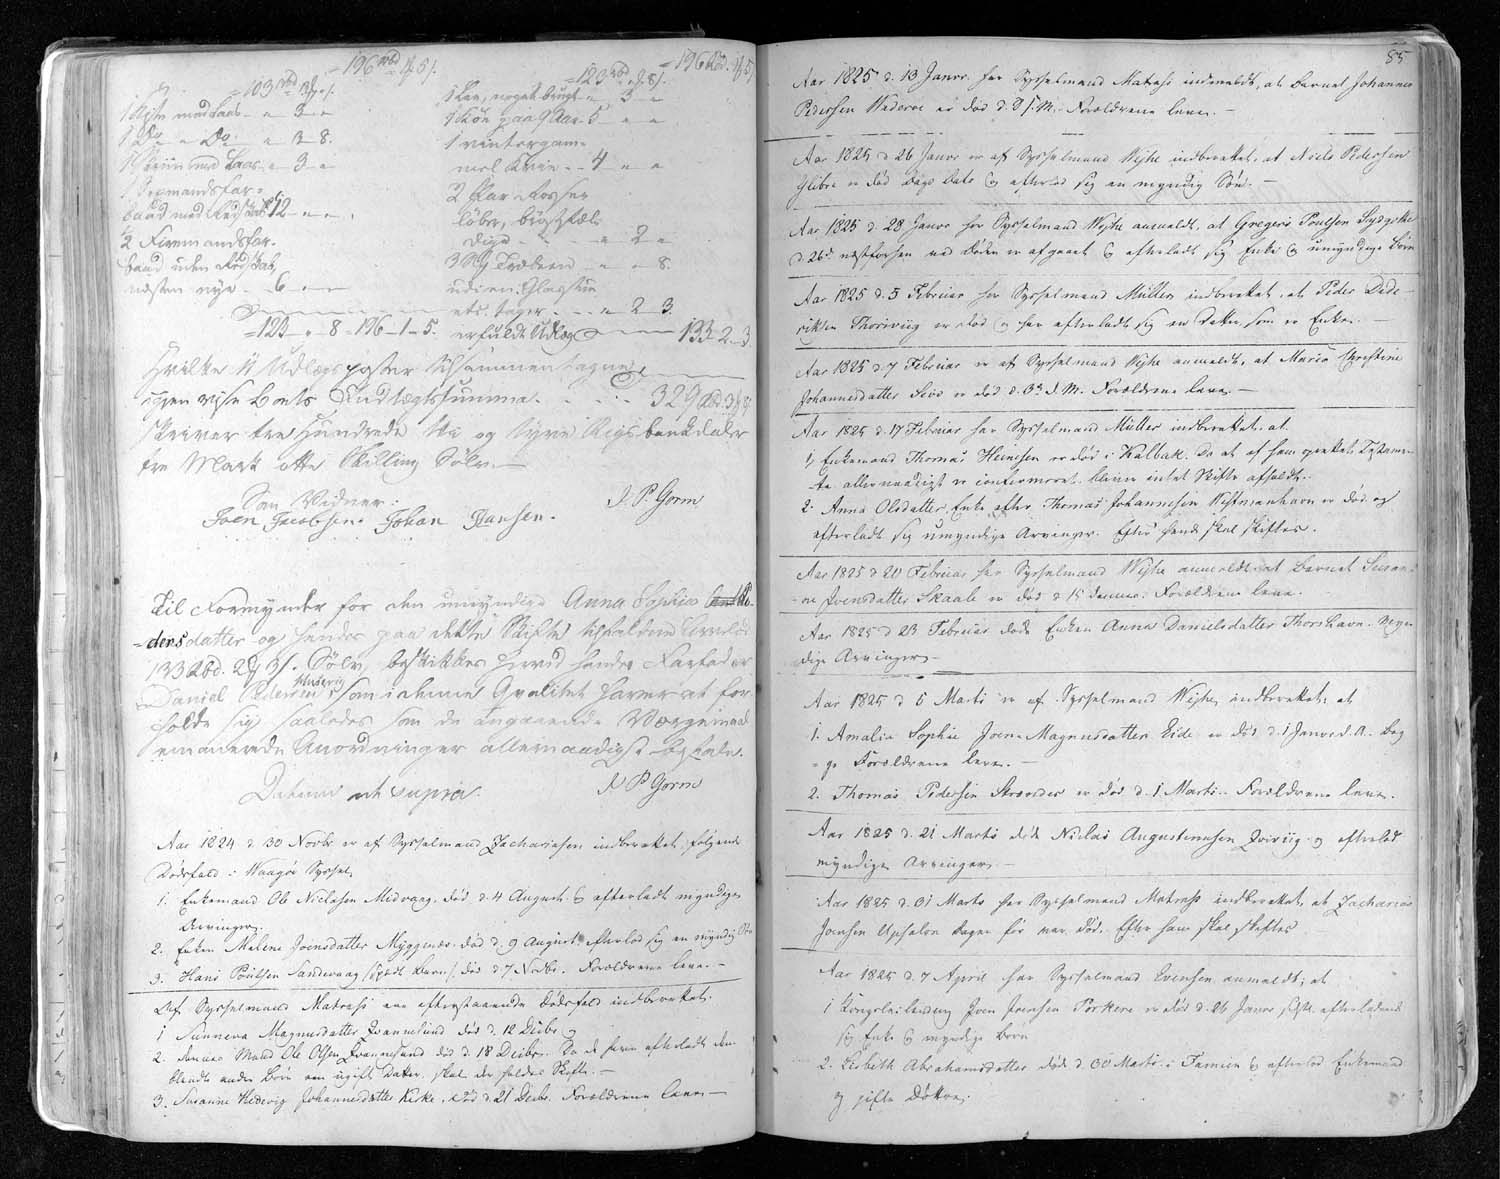 = 196 rbd 1 ₰ 5 s.
= 103 rbd
1 Kiste med Laas - " 3 - "
1 Do - " Do " 3 - 8.
1 Skriin med Laas - " 3 - "
baad med Redskab 12 - " - "
1/2 Firemandsfar-
baad uden Redskab,
næsten nye - 6 - " - "
= 123 - " 8 = 196 - 1 - 5.
= 123 rbd " 8 s. = 196 Rbd. 1 ₰ 5
1 Lee, noget brugt - " 3 - "
1 Koe paa 9 Aar - 5 - "
1 vintergam-
mel Kvie - - 4 - " - "
2 Par
dige - " - " 2 -
8.
- - - " 2 3.
erfuldt Udlæg 133 2 - 3
Hvilke Udlægsposter tilsammentagne
igien vise Boets Indtægtssumma. - - - 329 Rbd. 3 ₰ 8 s
skriver tre Hundrede Ni og tyve Rigsbankdaler
tre Mark otte Skilling Sølv. -
Som Vidner:
Joen Jacobsen. Johan Hansen.
J. P. Gorm
Til Formynder for den umyndige Anna Sophie Pe-
dersdatter og hendes paa dette Skifte tilfaldne Arvelod
133 Rbd. 2 ₰ 3 s. Sølv, beskikkes herved hendes Farfader
Daniel Pedersen Husevig, som i denne Qvalitet haver at for-
holde sig saaledes som de angaaende Værgemaal
emanerede Anordninger allernaadigst befale.
Datum ut supra.
J P Gorm
Aar 1824 d. 30 Novbr er af Sysselmand Zachariasen indberettet følgende
Dødsfald i Waagøe Syssel,
1. Enkemand Ole Niclasen Midvaag, død d. 4 August & efterladt myndige
Arvinger.
2. Enken Malene Joensdatter Myggenæs død d. 9 August, efterlod sig en myndig Søn
3. Hans Poulsen Sandevaag (spædt Barn) død d. 7 Novbr. Forældrene leve. -
Af Sysselmand Matras ere efterstaaende Dødsfald indberettet:
1 Sunneva Magnusdatter Qvannesund død d. 12 Decbr.
2. Mand Ole Olsen Qvannesund død d. 18 Decbr. Da de have efterladt
blandt andre Børn en ugift Datter, skal der holdes Skifte. -
3. Susanne Hedevig Johannesdatter Kirke, død d. 21 Decbr. Forældrene leve -
85
Aar 1825 d. 13 Janvr. har Sysselmand Matras indmeldt, at Barnet Johannes
Pedersen Waderøe er død d. 8 s. M. - Forældrene leve. -
Aar 1825 d. 26 Janvr er af Sysselmand Wejhe indberettet, at Niels Pedersen
Glibre er død & efterlod sig en myndig Søn. -
Aar 1825 d. 28 Janvr har Sysselmand Wejhe anmeldt, at Gregers Poulsen
d. 26de næstforhen ved Døden er afgaaet & efterladt sig Enke & umyndige Børn
Aar 1825 d. 5 Februar har Sysselmand Müller indberettet, at Peder Dide-
riksen Thorsviig er død og har efterladt sig en Datter, som er Enke. -
Aar 1825 d. 7 Februar er af Sysselmand Wejhe anmeldt, at Maria Christine
Johannesdatter Siov er død d. 3de d. M. Forældrene leve. -
Aar 1825 d. 17 Februar har Sysselmand Müller indberettet, at
1, Enkemand Thomas Heinesen er død i Kalbak. Da et af ham oprettet Testamen-
te allernaadigst er confirmeret, bliver intet Skifte afholdt.
2. Anna Olsdatter, Enke efter Thomas Johannesen Westmanhavn er død og
efterladt sig umyndige Arvinger. Efter hende skal skiftes.
Aar 1825 d. 20 Februar har Sysselmand Wejhe anmeldt at Barnet Susan-
ne Joensdatter Skaale er død d. 15 dennes. Forældrene leve. -
Aar 1825 d. 23 Februar døde Enken Anna Danielsdatter Thorshavn. Myn-
dige Arvinger. -
Aar 1825 d. 5 Marts er af Sysselmand Wejhe indberettet, at
1. Amalia Sophie Joen-Magnusdatter Eide er død d. 1 Janvr d. A. Beg-
ge Forældrene leve. -
2. Thomas Pedersen Strænder er død d. 1 Marts. Forældrene leve.
Aar 1825 d. 21 Marts døde Niclas Augustinusen Qvivig og efterlod
myndige Arvinger. -
Aar 1825 d. 31 Marts har Sysselmand Matras indberettet, at Zacharias
Joensen Upsalen Dagen før var død. Efter ham skal skiftes
Aar 1825 d. 7 April har Sysselmand Evensen anmeldt, at
1 Kongsleilending Joen Joensen Porkere er død d. 26 Janvr sidstl. efterladende
sig Enke & myndige Børn
2. Lisbeth Abrahamsdatter død d. 30 Marts i Famien & efterlod Enkemand
og gifte Døttre.